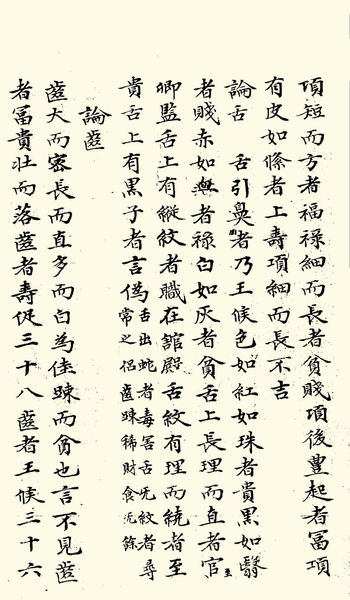 項短而方者福祿細而長者貧賤項後豊起者冨項
有皮如絛者上壽項細而長不吉
論舌 舌引鼻者乃王候色如紅如珠者貴黒如翳
者賤赤如者祿白如灰者貧舌上長理而直者官至
卿監舌上有縱紋者職在舘殿舌紋有理而繞者至
貴舌上有黒子者言僞舌出蛇者毒害舌无紋者尋
常之侶齒踈稀財食无餘
論齒
齒大而密長而直多而白爲佳踈而貧也言不見齒
者冨貴壯而落齒者壽促三十八齒者王候三十六